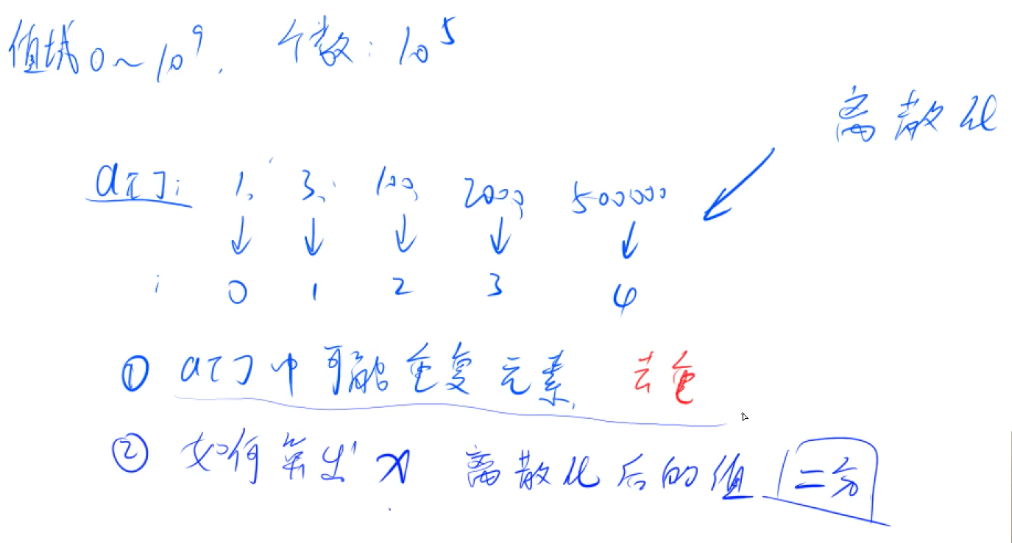 值域0~10^9. 个数:10^5
离散化
a[]: 1, 3, 100, 2000, 500000
↓ ↓ ↓ ↓ ↓
: 0 1 2 3 4
① a[]中可能重复元素, 去重
② 如何算出x 离散化后的值 二分